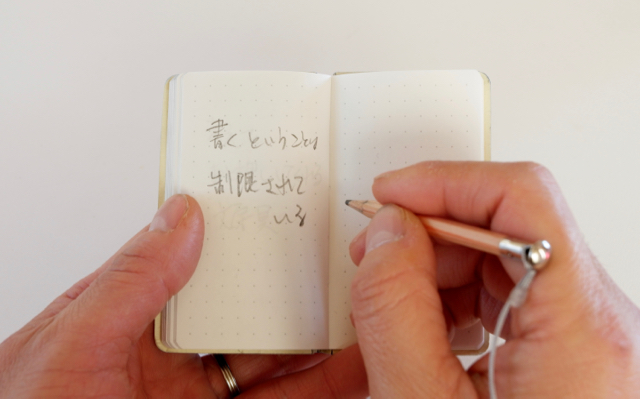 書くということは
制限されて
いる